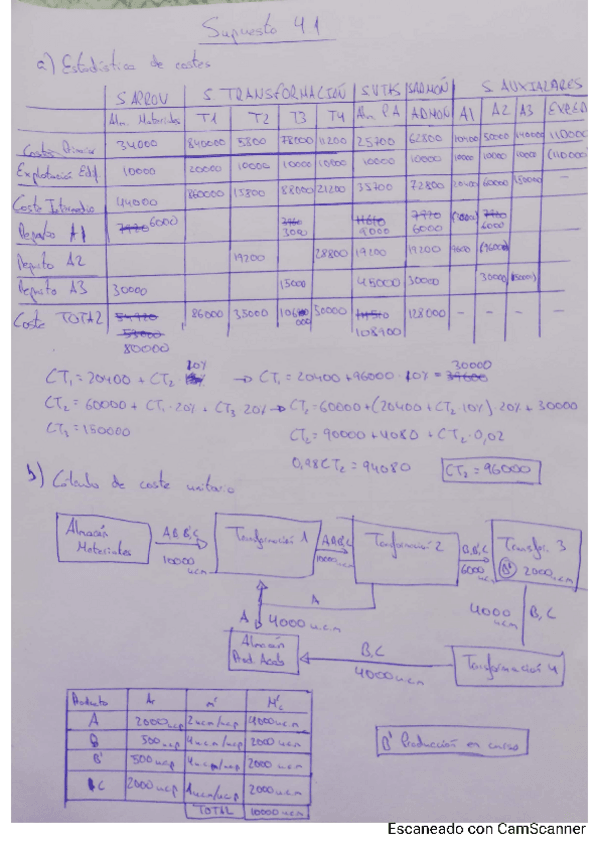 Supuesto 4.1
a) Estadística de costes
S. APROV S. TRANSFORMACIÓN S. VTAS S. ADMÓN S. AUXILIARES
Alm. Materiales T1 T2 T3 T4 Alm PA ADMÓN A1 A2 A3 EXPED
Costes 34000 840000 5800 78000 11200 25700 62800 10400 50000 140000 110000
Explotación Edif 10000 20000 10000 10000 10000 10000 10000 10000 10000 10000 (110000)
Coste Intermedio 44000 860000 15800 88000 21200 35700 72800 20400 60000 150000 -
Reparto A1 6000 3000 9000 6000 6000
Reparto A2 19200 28800 19200 19200 9600 (96000)
Reparto A3 30000 15000 45000 30000 30000 (150000)
Coste TOTAL 86000 35000 50000 128000 - - - -
80000 108900
CT₁ = 20400 + CT₂ 10% → CT₁ = 20400 + 96000 · 10% = 30000
CT₂ = 60000 + CT₁ · 20% + CT₃ 20% → CT₂ = 60000 + (20400 + CT₂ · 10%) 20% + 30000
CT₃ = 150000 CT₂ = 90000 + 4080 + CT₂ · 0,02
0,98 CT₂ = 94080 CT₂ = 96000
b) Cálculo de coste unitario
Almacén Materiales A,B,B',C 10000 ucm Transformación 1 A,B,B',C 10000 ucm Transformación 2 B,B',C 6000 ucm Transfor. 3 B' 2000 ucm
A 4000 ucm A 4000 ucm B,C
Almacén Prod. Acab B,C 4000 ucm Transformación 4
Producto m' M'c
A 2000 ucp 2 ucm/ucp 4000 ucm
B 500 ucp 4 ucm/ucp 2000 ucm
B' 500 ucp 4 ucm/ucp 2000 ucm
C 2000 ucp 1 ucm/ucp 2000 ucm
TOTAL 10000 ucm
B' Producción en curso
Escaneado con CamScanner